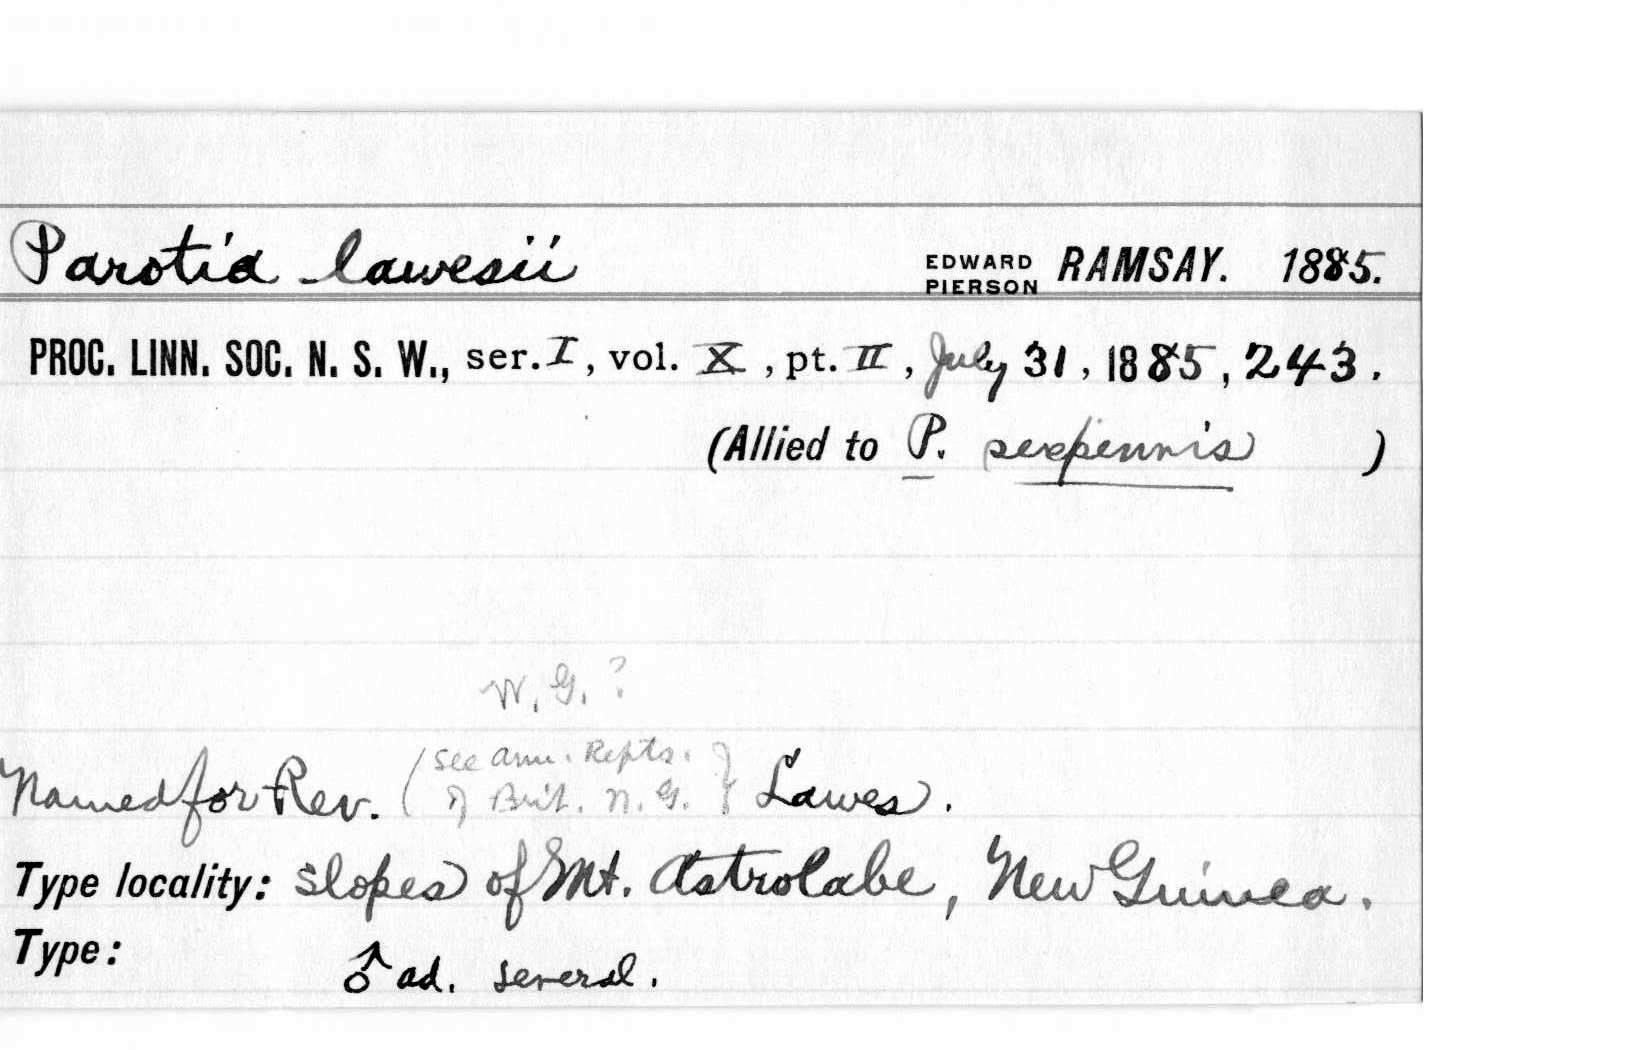 Parotia lawesii EDWARD PIERSON RAMSAY. 1885.
PROC. LINN. SOC. N. S. W., ser. I, vol. X, pt. II, July 31, 1885, 243.
(Allied to P. sexpennis )
W. G. ?
Named for Rev. (see Ann. Repts. of Brit. N. G.) Lawes.
Type locality: slopes of Mt. Astrolabe, New Guinea.
Type: ♂ ad. several.